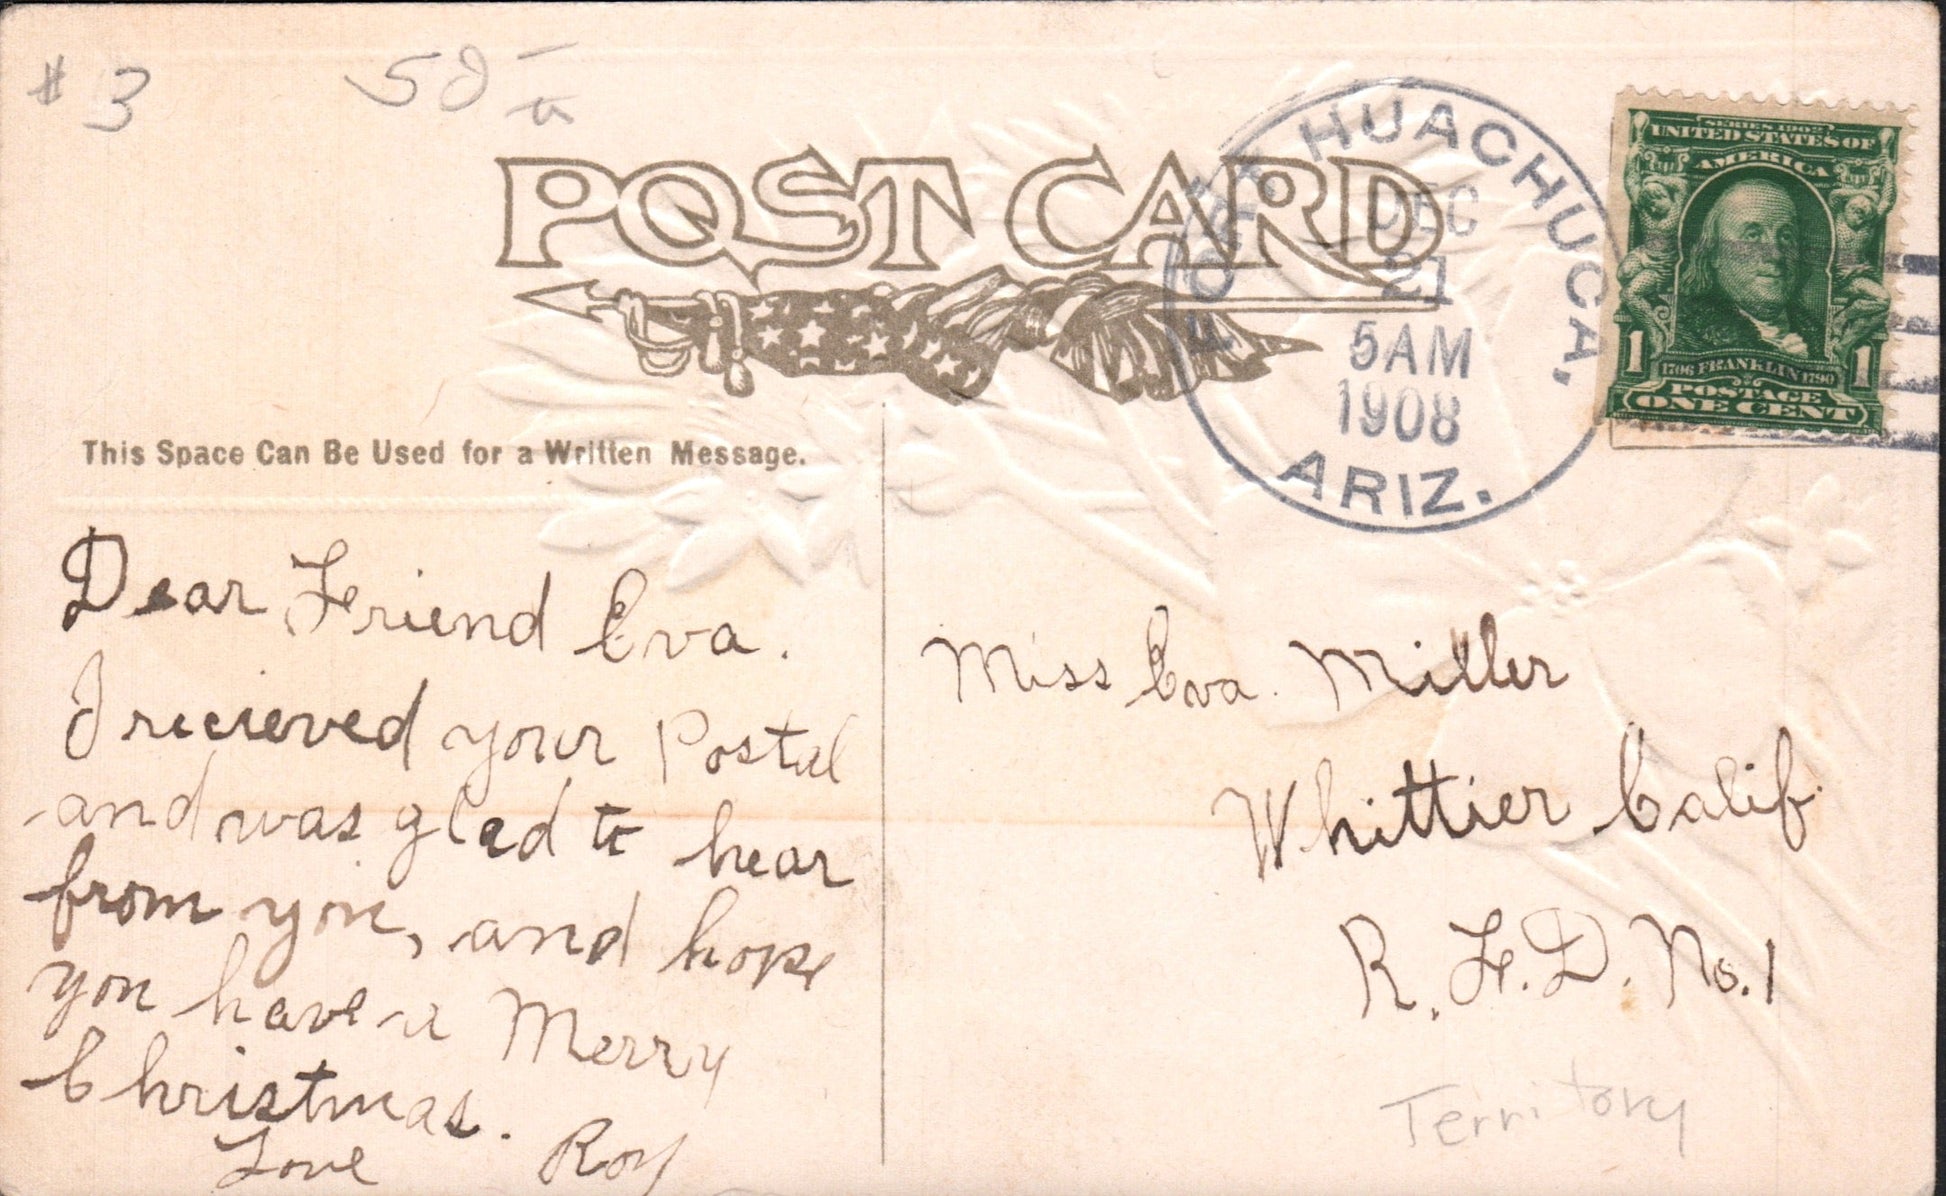 # 3
50
POST CARD
FORT HUACHUCA,
DEC
21
5AM
1908
ARIZ.
SERIES 1902
UNITED STATES OF
AMERICA
1 1706 FRANKLIN 1790 1
POSTAGE
ONE CENT
This Space Can Be Used for a Written Message.
Dear Friend Eva.
I recieved your Postal
and was glad to hear
from you, and hope
you have a Merry
Christmas.
Love Roy
Miss Eva. Miller
Whittier Calif.
R. F. D. No. 1
Territory